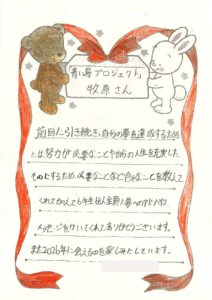 「青い鳥プロジェクト」
牧原さん
前回に引き続き、自分の夢を達成するため
には努力が必要なことや自分の人生を充実した
ものにするため必要なことなど色んなことを教えて
くれて 6年生 全員に夢へのアドバイス、
メッセージをかいてくれてありがとうございます。
また2026年に会えるのを楽しみにしています。